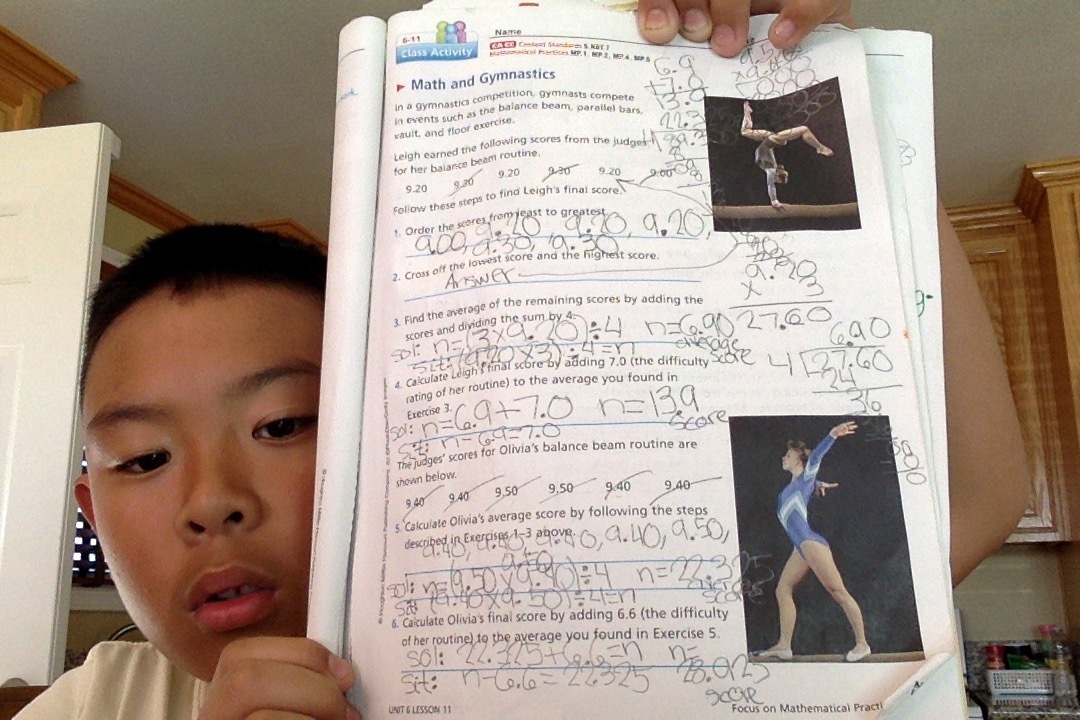 6-11
Class Activity
Name
CA CC Content Standards 5.NBT.7
Mathematical Practices MP.1, MP.2, MP.4, MP.5
► Math and Gymnastics
In a gymnastics competition, gymnasts compete
in events such as the balance beam, parallel bars,
vault, and floor exercise.
Leigh earned the following scores from the judges
for her balance beam routine.
9.20 9.30 9.20 9.30 9.20 9.00
Follow these steps to find Leigh's final score.
1. Order the scores from least to greatest.
9.20, 9.20, 9.20,
9.00, 9.30, 9.30
2. Cross off the lowest score and the highest score.
Answer
3. Find the average of the remaining scores by adding the
scores and dividing the sum by 4.
sol: n=(3x9.20)÷4 n=6.90
average
score
sit: (9.20x3)÷4=n
4. Calculate Leigh's final score by adding 7.0 (the difficulty
rating of her routine) to the average you found in
Exercise 3.
sol: n=6.9+7.0 n=13.9
score
sit: n-6.9=7.0
The judges' scores for Olivia's balance beam routine are
shown below.
9.40 9.40 9.50 9.50 9.40 9.40
5. Calculate Olivia's average score by following the steps
described in Exercises 1–3 above.
9.40, 9.50,
sol: n=(9.50x9.40)÷4 n=22.325
score
sit: (9.40x9.50)÷4=n
6. Calculate Olivia's final score by adding 6.6 (the difficulty
of her routine) to the average you found in Exercise 5.
sol: 22.325+6.6=n n=
28.925
sit: n-6.6=22.325
score
UNIT 6 LESSON 11
Focus on Mathematical Practi
6.9
+7.0
13.9
9.20
x 3
27.60
6.90
4 27.60
24
36